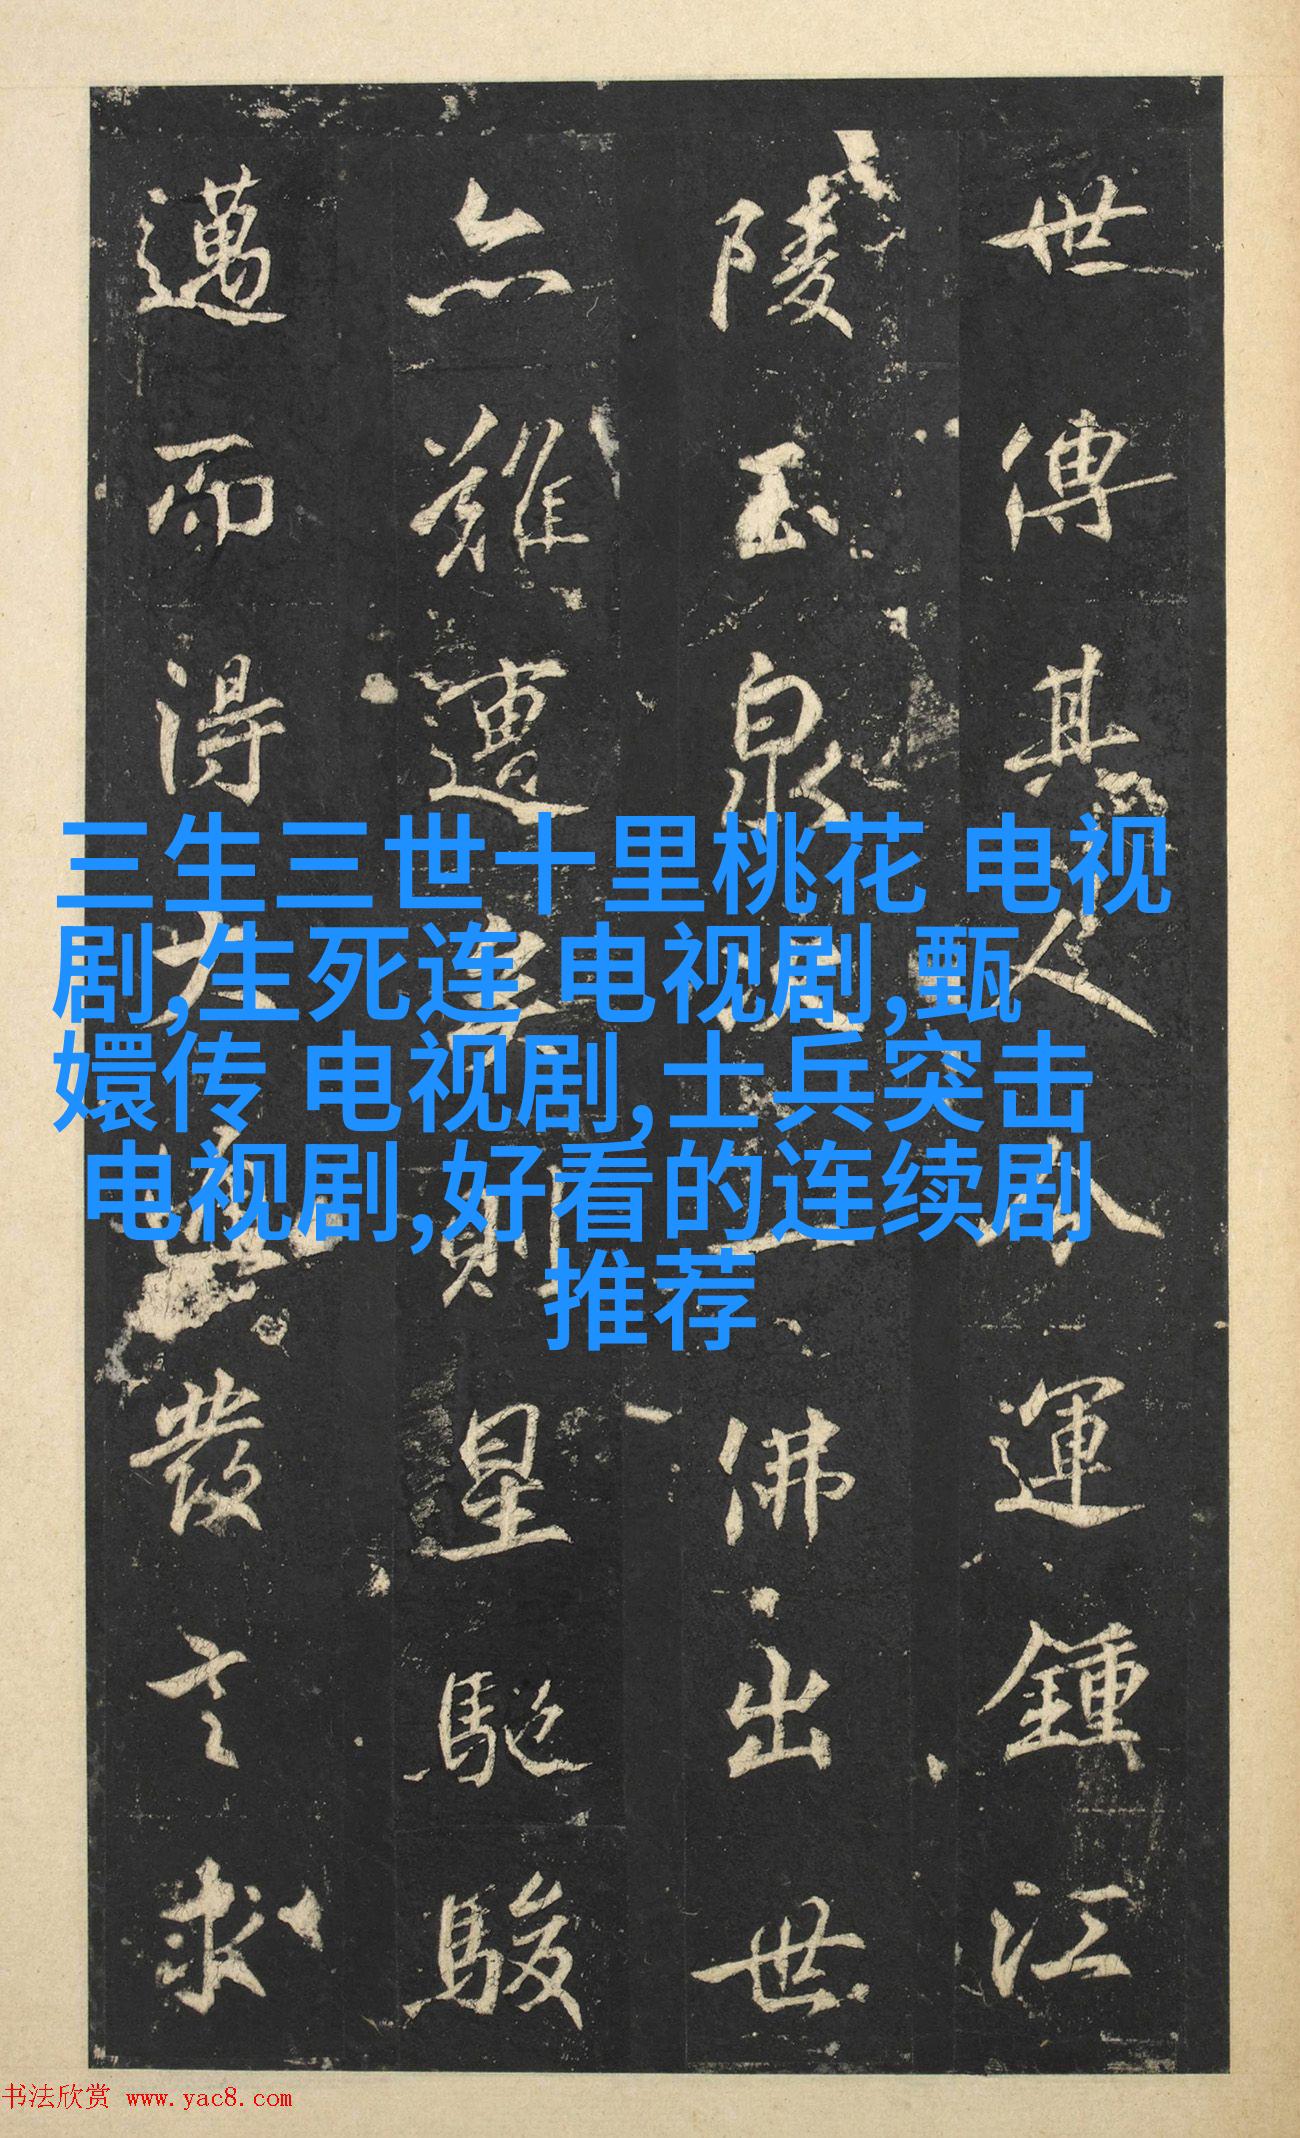 世傳其人運鍾江
陵玉泉佛出世
亦難遭則星馳駿
邁而得發言求
三生三世十里桃花 电视
剧,生死连 电视剧,甄
嬛传 电视剧,士兵突击
电视剧,好看的连续剧
推荐
书法欣赏 www.yac8.com